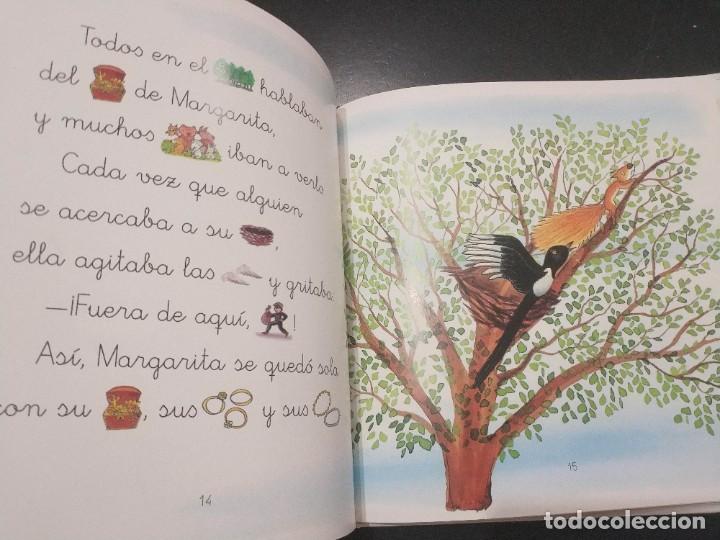 Todos en el hablaban
del de Margarita,
y muchos iban a verlo
Cada vez que alguien
se acercaba a su ,
ella agitaba las y gritaba:
—¡Fuera de aquí, !
Así, Margarita se quedó sola
con su , sus y sus
14
15
todocoleccion